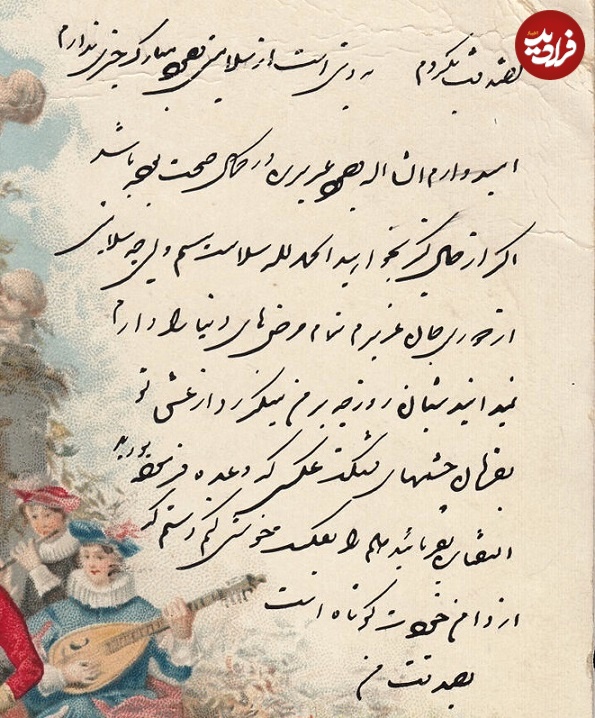 فرادید
تصدقت بگردم مدتی است از سلامتی وجود مبارک خبری ندارم
امیدوارم ان شاء اله وجود عزیزت در کمال صحت بوده باشد
اگر از حال بخواهید الحمد لله سلامت هستم ولی چه سلامتی
از دوری جان عزیزم تمام مرض های دنیا را دارم
نمیدانید شبان روز چه بر من میگذرد از عشق تو
بقربان چشمهای قشنگت عکسی که وعده فرموده بودید
التفات بفرمائید دلم را بعکست خوش کنم دستم که
از دامن خودت کوتاه است
تصدقت من